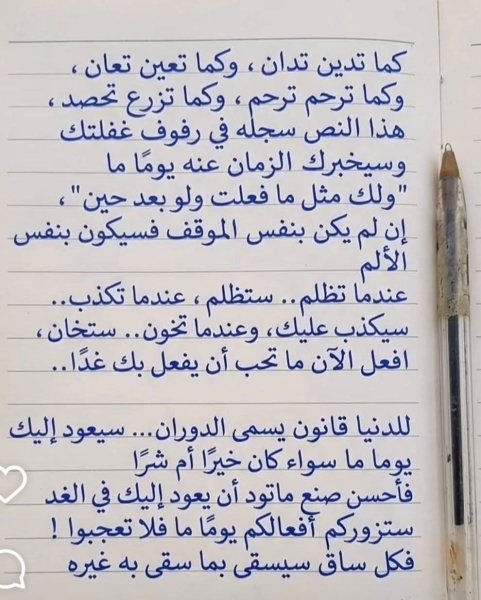 كما تدين تدان ، وكما تعين تعان ،
وكما ترحم ترحم ، وكما تزرع تحصد ،
هذا النص سجله في رفوف غفلتك
وسيخبرك الزمان عنه يومًا ما
"ولك مثل ما فعلت ولو بعد حين"،
إن لم يكن بنفس الموقف فسيكون بنفس
الألم
عندما تظلم.. ستظلم ، عندما تكذب..
سيكذب عليك، وعندما تخون.. ستخان،
افعل الآن ما تحب أن يفعل بك غدًا..
للدنيا قانون يسمى الدوران... سيعود إليك
يوما ما سواء كان خيرًا أم شرًا
فأحسن صنع ماتود أن يعود إليك في الغد
ستزوركم أفعالكم يومًا ما فلا تعجبوا !
فكل ساق سيسقى بما سقى به غيره